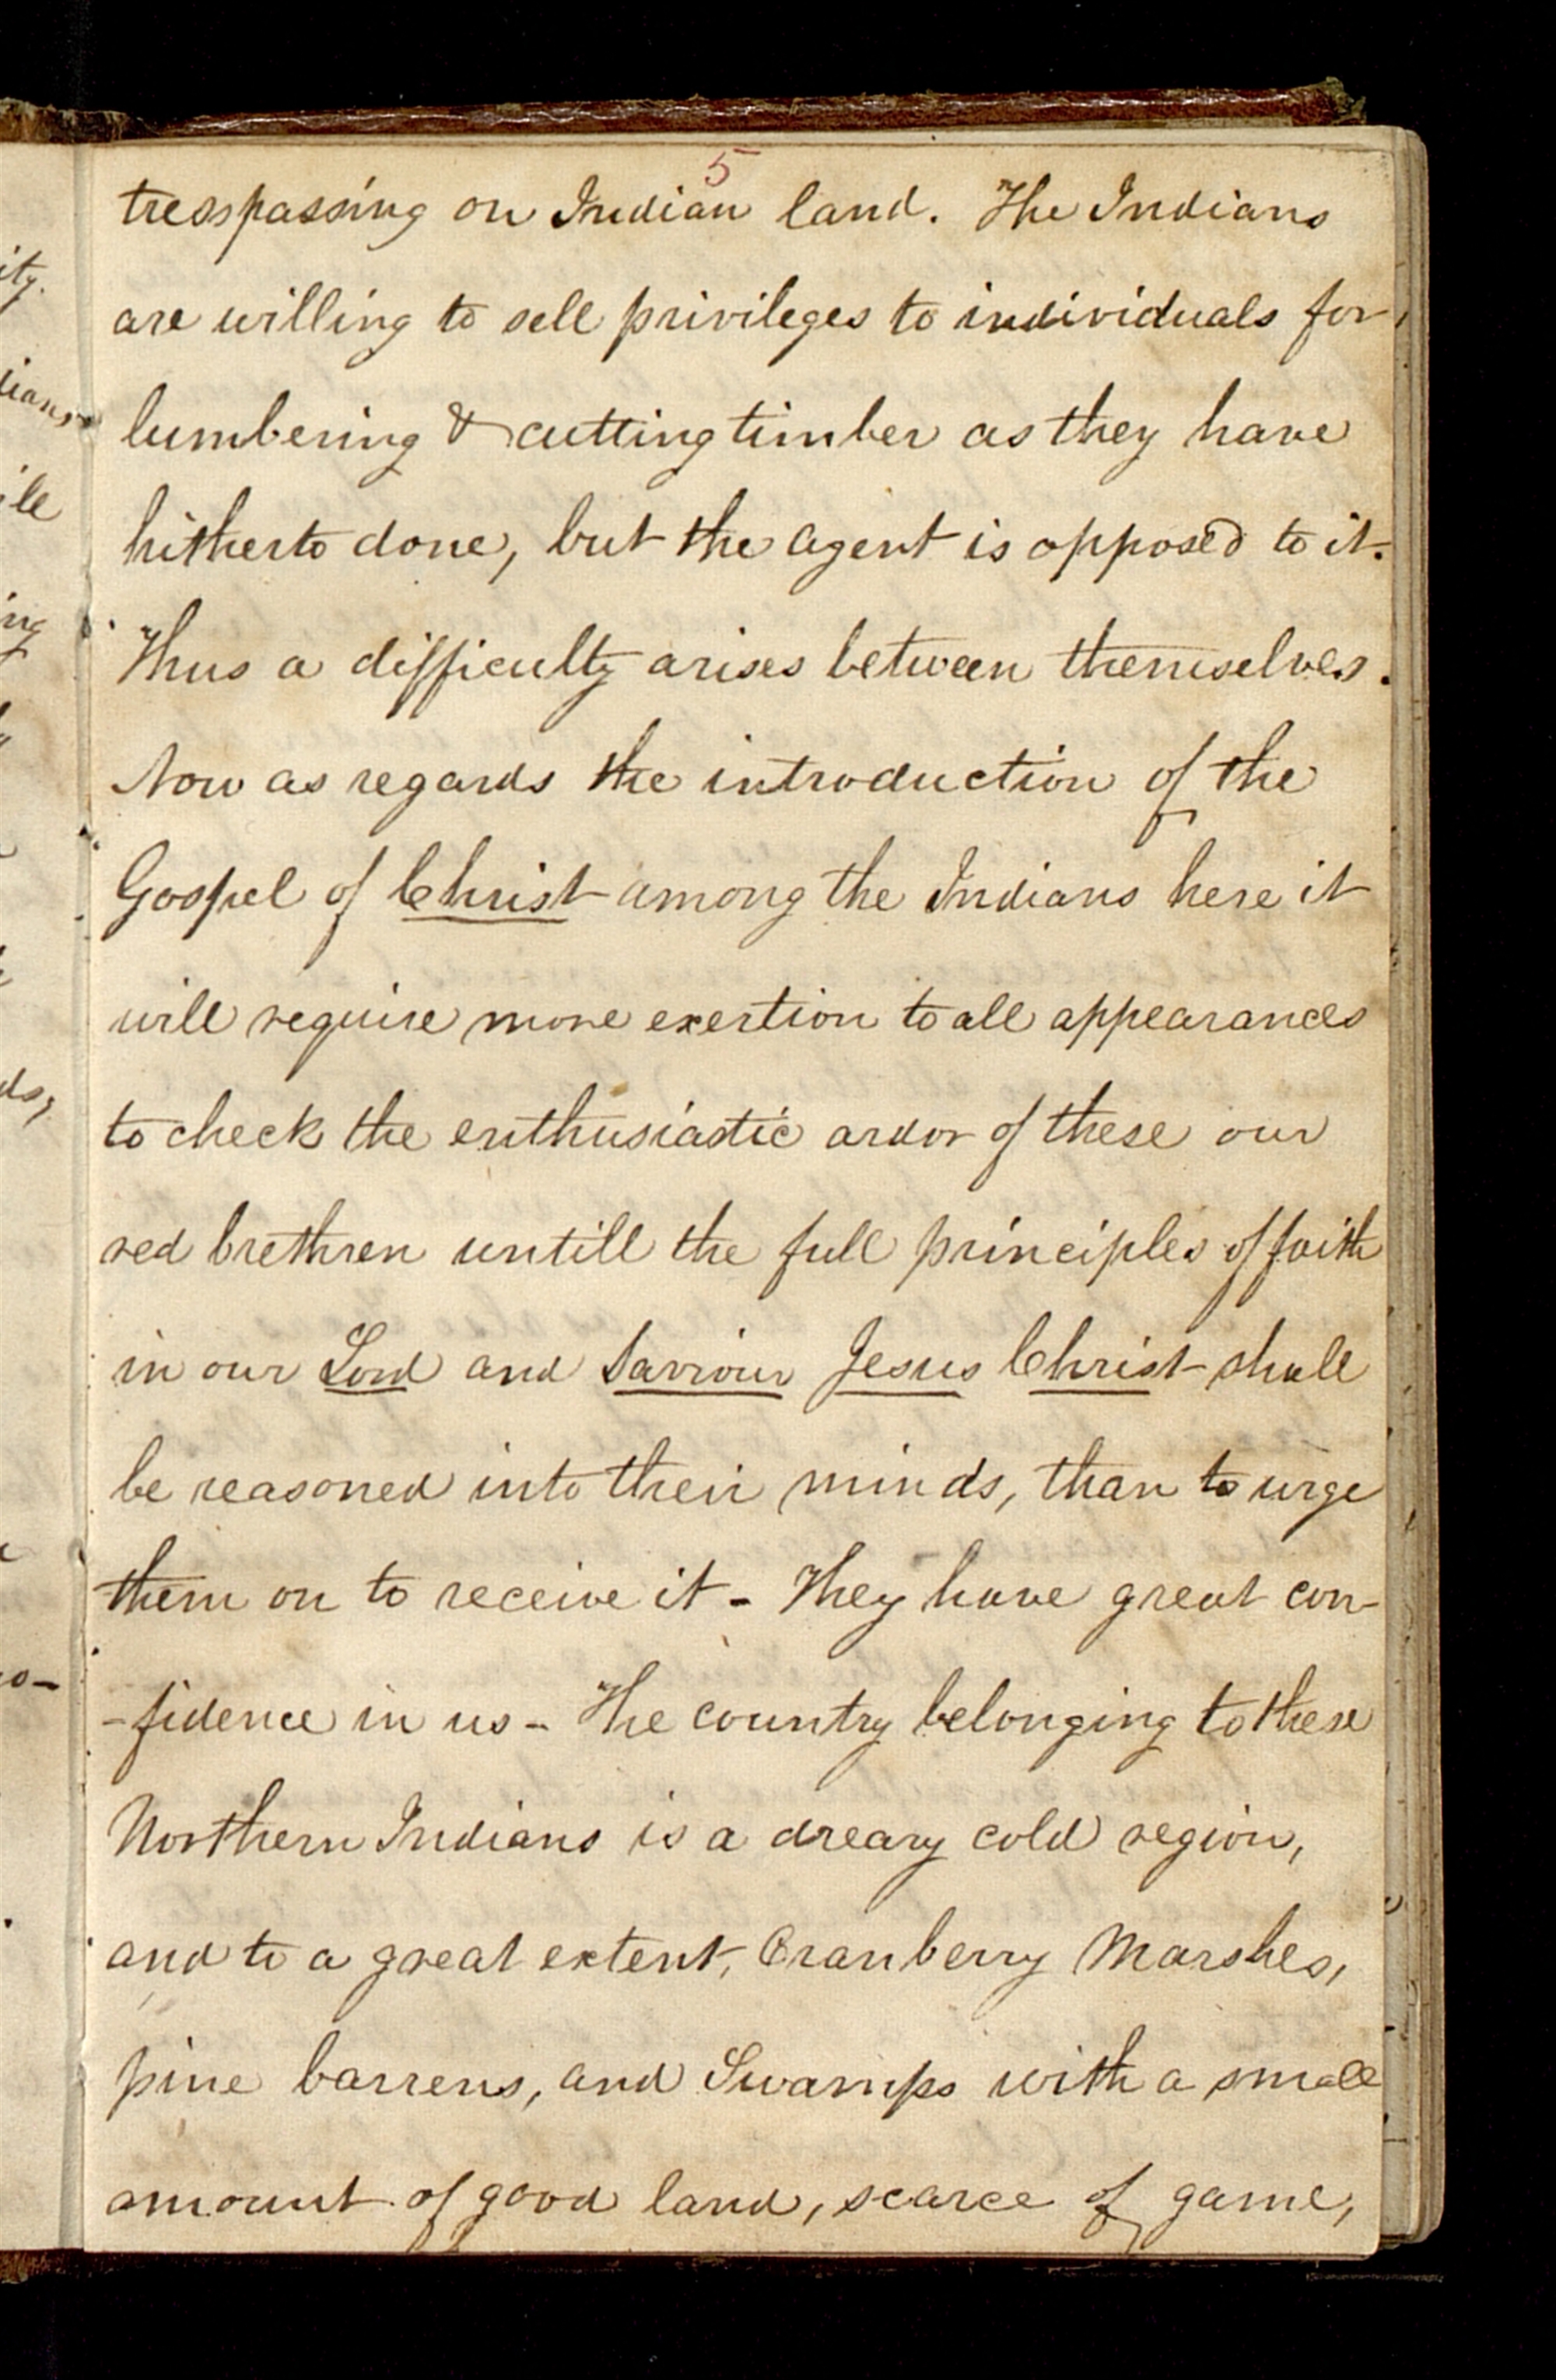 5
tresspassing on Indian land. The Indians
are willing to sell privileges to individuals for
lumbering & cutting timber as they have
hitherto done, but the agent is opposed to it.
Thus a difficulty arises between themselves.
Now as regards the introduction of the
Gospel of Christ among the Indians here it
will require more exertion to all appearances
to check the enthusiastic ardor of these our
red brethren untill the full principles of faith
in our Lord and Saviour Jesus Christ shall
be reasoned into their minds, than to urge
them on to receive it - They have great con-
-fidence in us - The country belonging to these
Northern Indians is a dreary cold region,
and to a great extent, Cranberry Marshes,
pine barrens, and Swamps with a small
amount of good land, scarce of game,